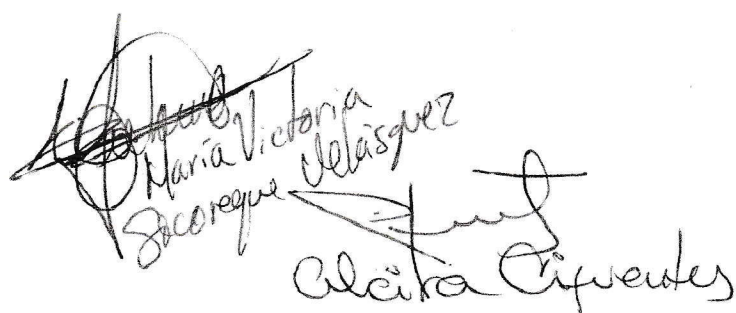 María Victoria
Socoreque Velásquez
Alcira Cifuentes